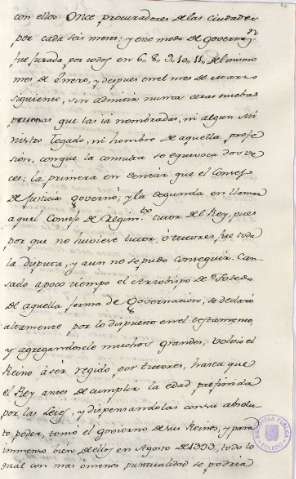 con ellos Once procuradores de las ciudades
por cada seis meses; y ese modo de governaⁿ
fue jurada por todos en 6. 8. 9. 10. 11, del mismo
mes de Enero, y despues en el mes de Marzo
siguiente, sin admitir nunca otras nuebas
personas que las ia nombradas, ni algun Mi
nistro Togado, ni hombre de aquella profe
sion, conque la consulta se equivoca dos ve
ces: la primera en sentar que el Consejo
de Justicia governó; y la segunda en llamar
aquel Consejo de Regim.to tutor del Rey, pues
por que no huviese tutor, ó tutores fue toda
la disputa, y aun no se pudo conseguir. Can
sado a poco tiempo el Arzobispo de Toledo
de aquella forma de Governacion, se declaró
altamente por lo dispuesto en el testamento
y agregandosele muchos grandes, volvió el
Reino á ser regido por tutores, hasta que
el Rey antes de cumplir la edad prefinida
por las Leyes, y dispensandolas con su absolu
to poder, tomó el govierno de sus Reinos, y para
inmenso bien de ellos en Agosto de 1393, todo lo
qual con mas o menos puntualidad se podria